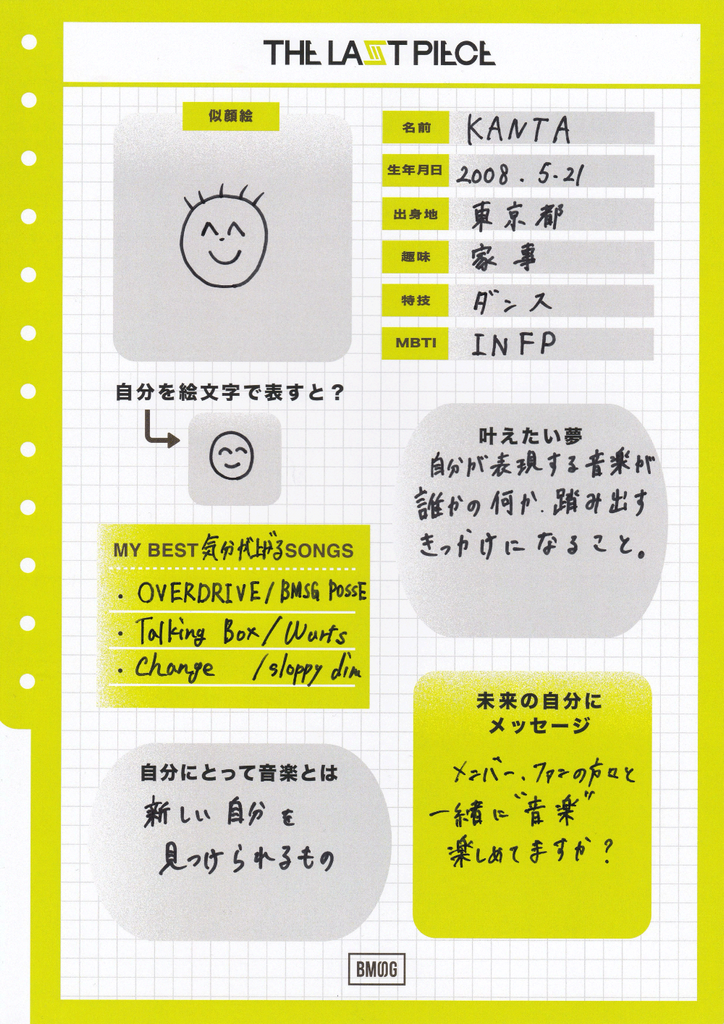 THE LAST PIECE
似顔絵
名前 KANTA
生年月日 2008.5.21
出身地 東京都
趣味 家事
特技 ダンス
MBTI INFP
自分を絵文字で表すと?
叶えたい夢
自分が表現する音楽が
誰かの何か、踏み出す
きっかけになること。
MY BEST 気分が上がる SONGS
・OVERDRIVE/BMSG POSSE
・Talking Box/Wurts
・Change /sloppy dim
未来の自分に
メッセージ
メンバー、ファンの方々と
一緒に"音楽"
楽しめてますか?
自分にとって音楽とは
新しい自分を
見つけられるもの
BMSG